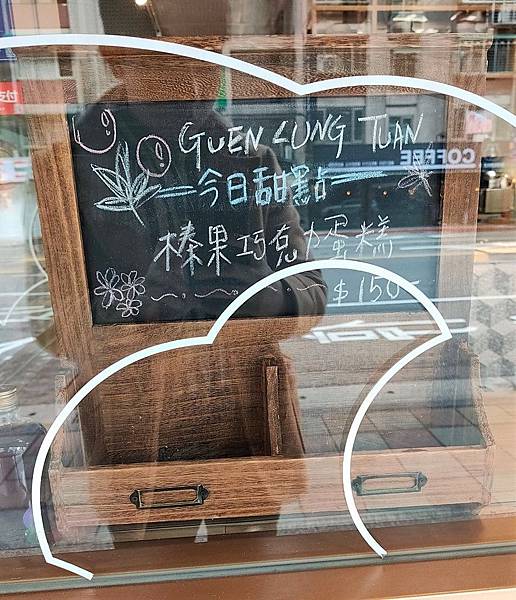 GUEN LUNG TUAN
今日甜點
榛果巧克力蛋糕
$150-
COFFEE